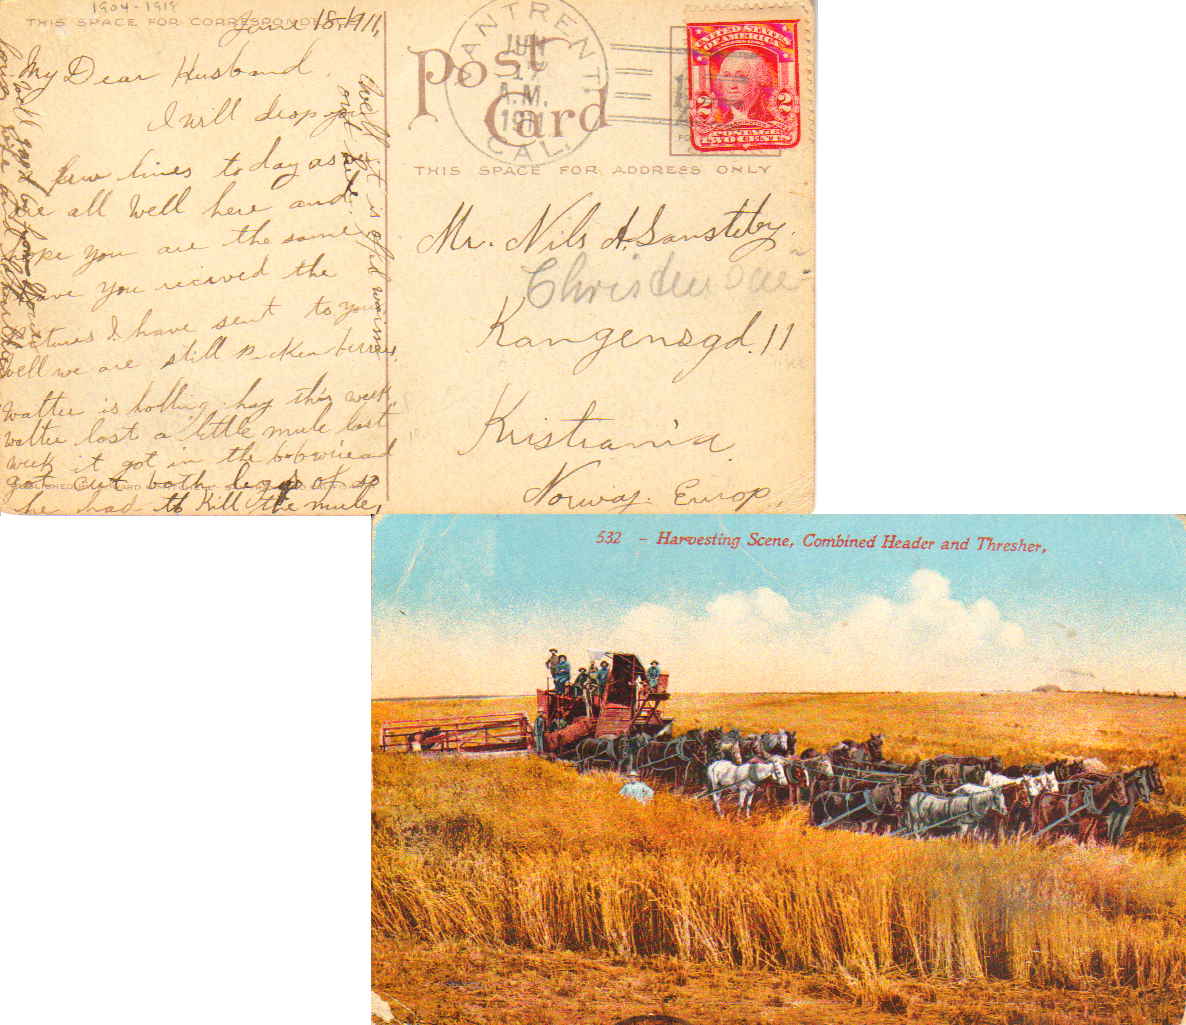 1904-1919
THIS SPACE FOR CORRESPONDENCE
June 18, 1911,
My Dear Husband.
I will drop you
few lines today as
we all well here and
hope you are the same
have you recieved the
Pictures I have sent to you
well we are still Picken berries.
Walter is holling hay this week
Walter lost a little mule last
week it got in the bobwire and
got cut both legs of so
he had to kill the mule,
well it is afel warm
out here
well good by from
Post Card
ANTRENT.
JUN
17
A.M.
1911
CAL.
UNITED STATES
OF AMERICA
2 2
POSTAGE
TWO CENTS
THIS SPACE FOR ADDRESS ONLY
Mr. Nils A. Sansteby.
Kangensgd. 11
Kristiania
Norway. Europ.,
532 - Harvesting Scene, Combined Header and Thresher,